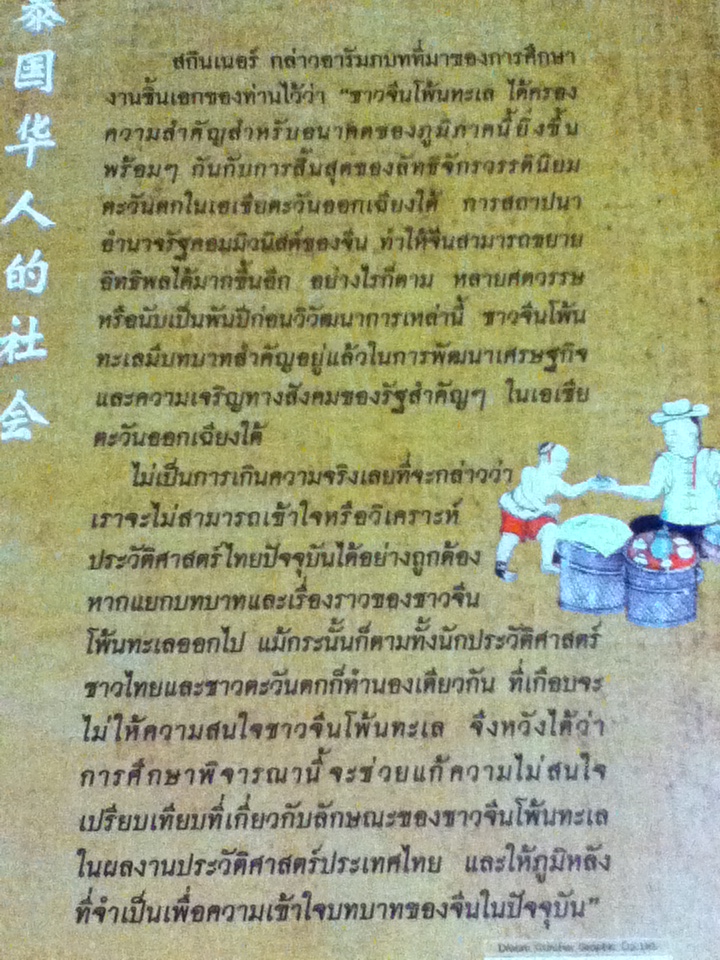 泰国华人的社会
สกินเนอร์ กล่าวอารัมภบทที่มาของการศึกษา
งานชิ้นเอกของท่านไว้ว่า “ชาวจีนโพ้นทะเล ได้ครอง
ความสำคัญสำหรับอนาคตของภูมิภาคนี้ยิ่งขึ้น
พร้อมๆ กันกับการสิ้นสุดของลัทธิจักรวรรดินิยม
ตะวันตกในเอเชียตะวันออกเฉียงใต้ การสถาปนา
อำนาจรัฐคอมมิวนิสต์ของจีน ทำให้จีนสามารถขยาย
อิทธิพลได้มากขึ้นอีก อย่างไรก็ตาม หลายศตวรรษ
หรือนับเป็นพันปีก่อนวิวัฒนาการเหล่านี้ ชาวจีนโพ้น
ทะเลมีบทบาทสำคัญอยู่แล้วในการพัฒนาเศรษฐกิจ
และความเจริญทางสังคมของรัฐสำคัญๆ ในเอเชีย
ตะวันออกเฉียงใต้
ไม่เป็นการเกินความจริงเลยที่จะกล่าวว่า
เราจะไม่สามารถเข้าใจหรือวิเคราะห์
ประวัติศาสตร์ไทยปัจจุบันได้อย่างถูกต้อง
หากแยกบทบาทและเรื่องราวของชาวจีน
โพ้นทะเลออกไป แม้กระนั้นก็ตามทั้งนักประวัติศาสตร์
ชาวไทยและชาวตะวันตกก็ทำนองเดียวกัน ที่เกือบจะ
ไม่ให้ความสนใจชาวจีนโพ้นทะเล จึงหวังได้ว่า
การศึกษาพิจารณานี้จะช่วยแก้ความไม่สนใจ
เปรียบเทียบที่เกี่ยวกับลักษณะของชาวจีนโพ้นทะเล
ในผลงานประวัติศาสตร์ประเทศไทย และให้ภูมิหลัง
ที่จำเป็นเพื่อความเข้าใจบทบาทของจีนในปัจจุบัน”